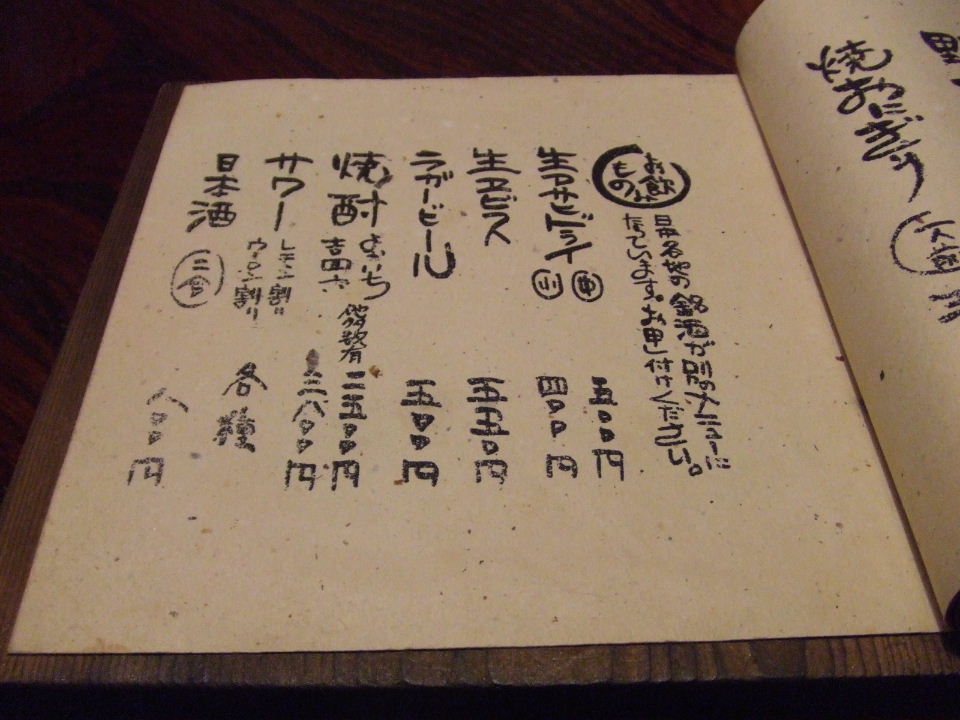 焼おにぎり
お飲もの
日本各地の銘酒が別のメニューに
なっています。お申し付けください。
生アサヒドライ 中 五〇〇円
小 四〇〇円
生ヱビス 五五〇円
ラガービール 五〇〇円
焼酎 よいち 多数有 二五〇〇円
吉四六 三八〇〇円
サワー レモン割り 各種
ウーロン割り
日本酒 二合 八〇〇円